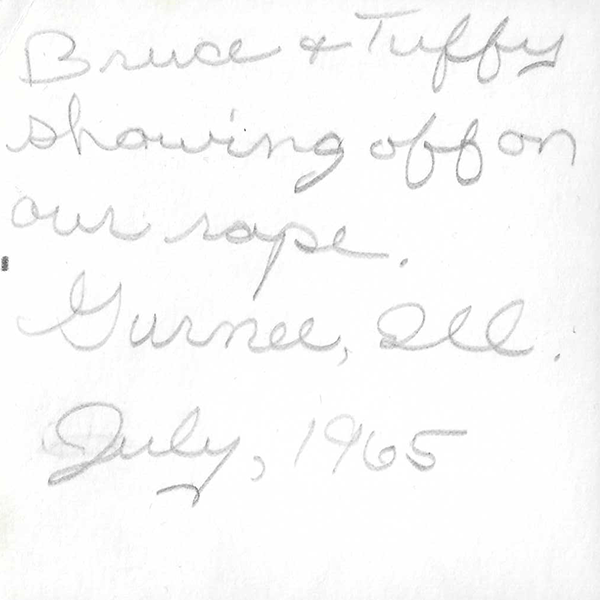 Bruce & Tuffy
showing off on
our rope.
Gurnee, Ill.
July, 1965